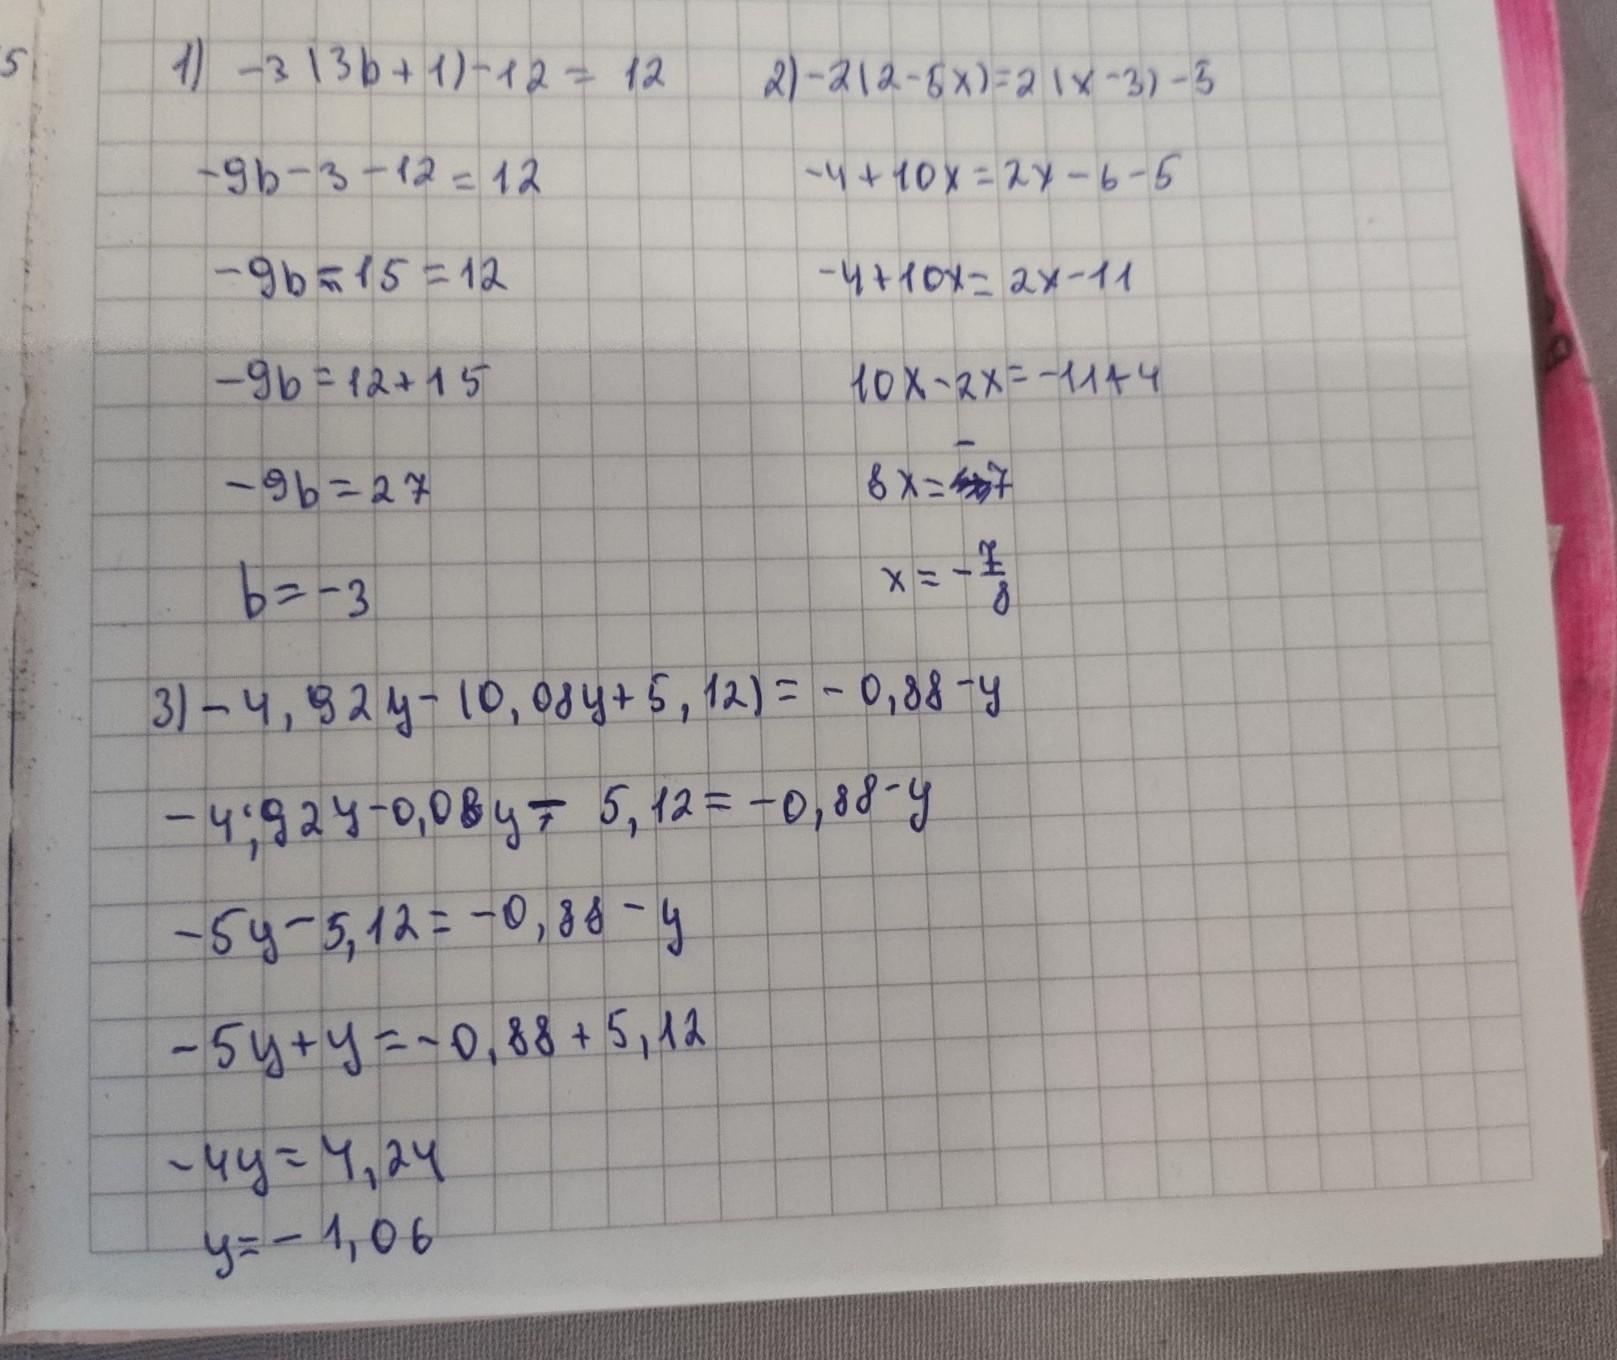 5
1) -3(3b+1)-12=12
-9b-3-12=12
-9b-15=12
-9b=12+15
-9b=27
b=-3
2) -2(2-5x)=2(x-3)-5
-4+10x=2x-6-5
-4+10x=2x-11
10x-2x=-11+4
8x=-7
x=-7/8
3) -4,92y-(0,08y+5,12)=-0,88-y
-4,92y-0,08y-5,12=-0,88-y
-5y-5,12=-0,88-y
-5y+y=-0,88+5,12
-4y=4,24
y=-1,06